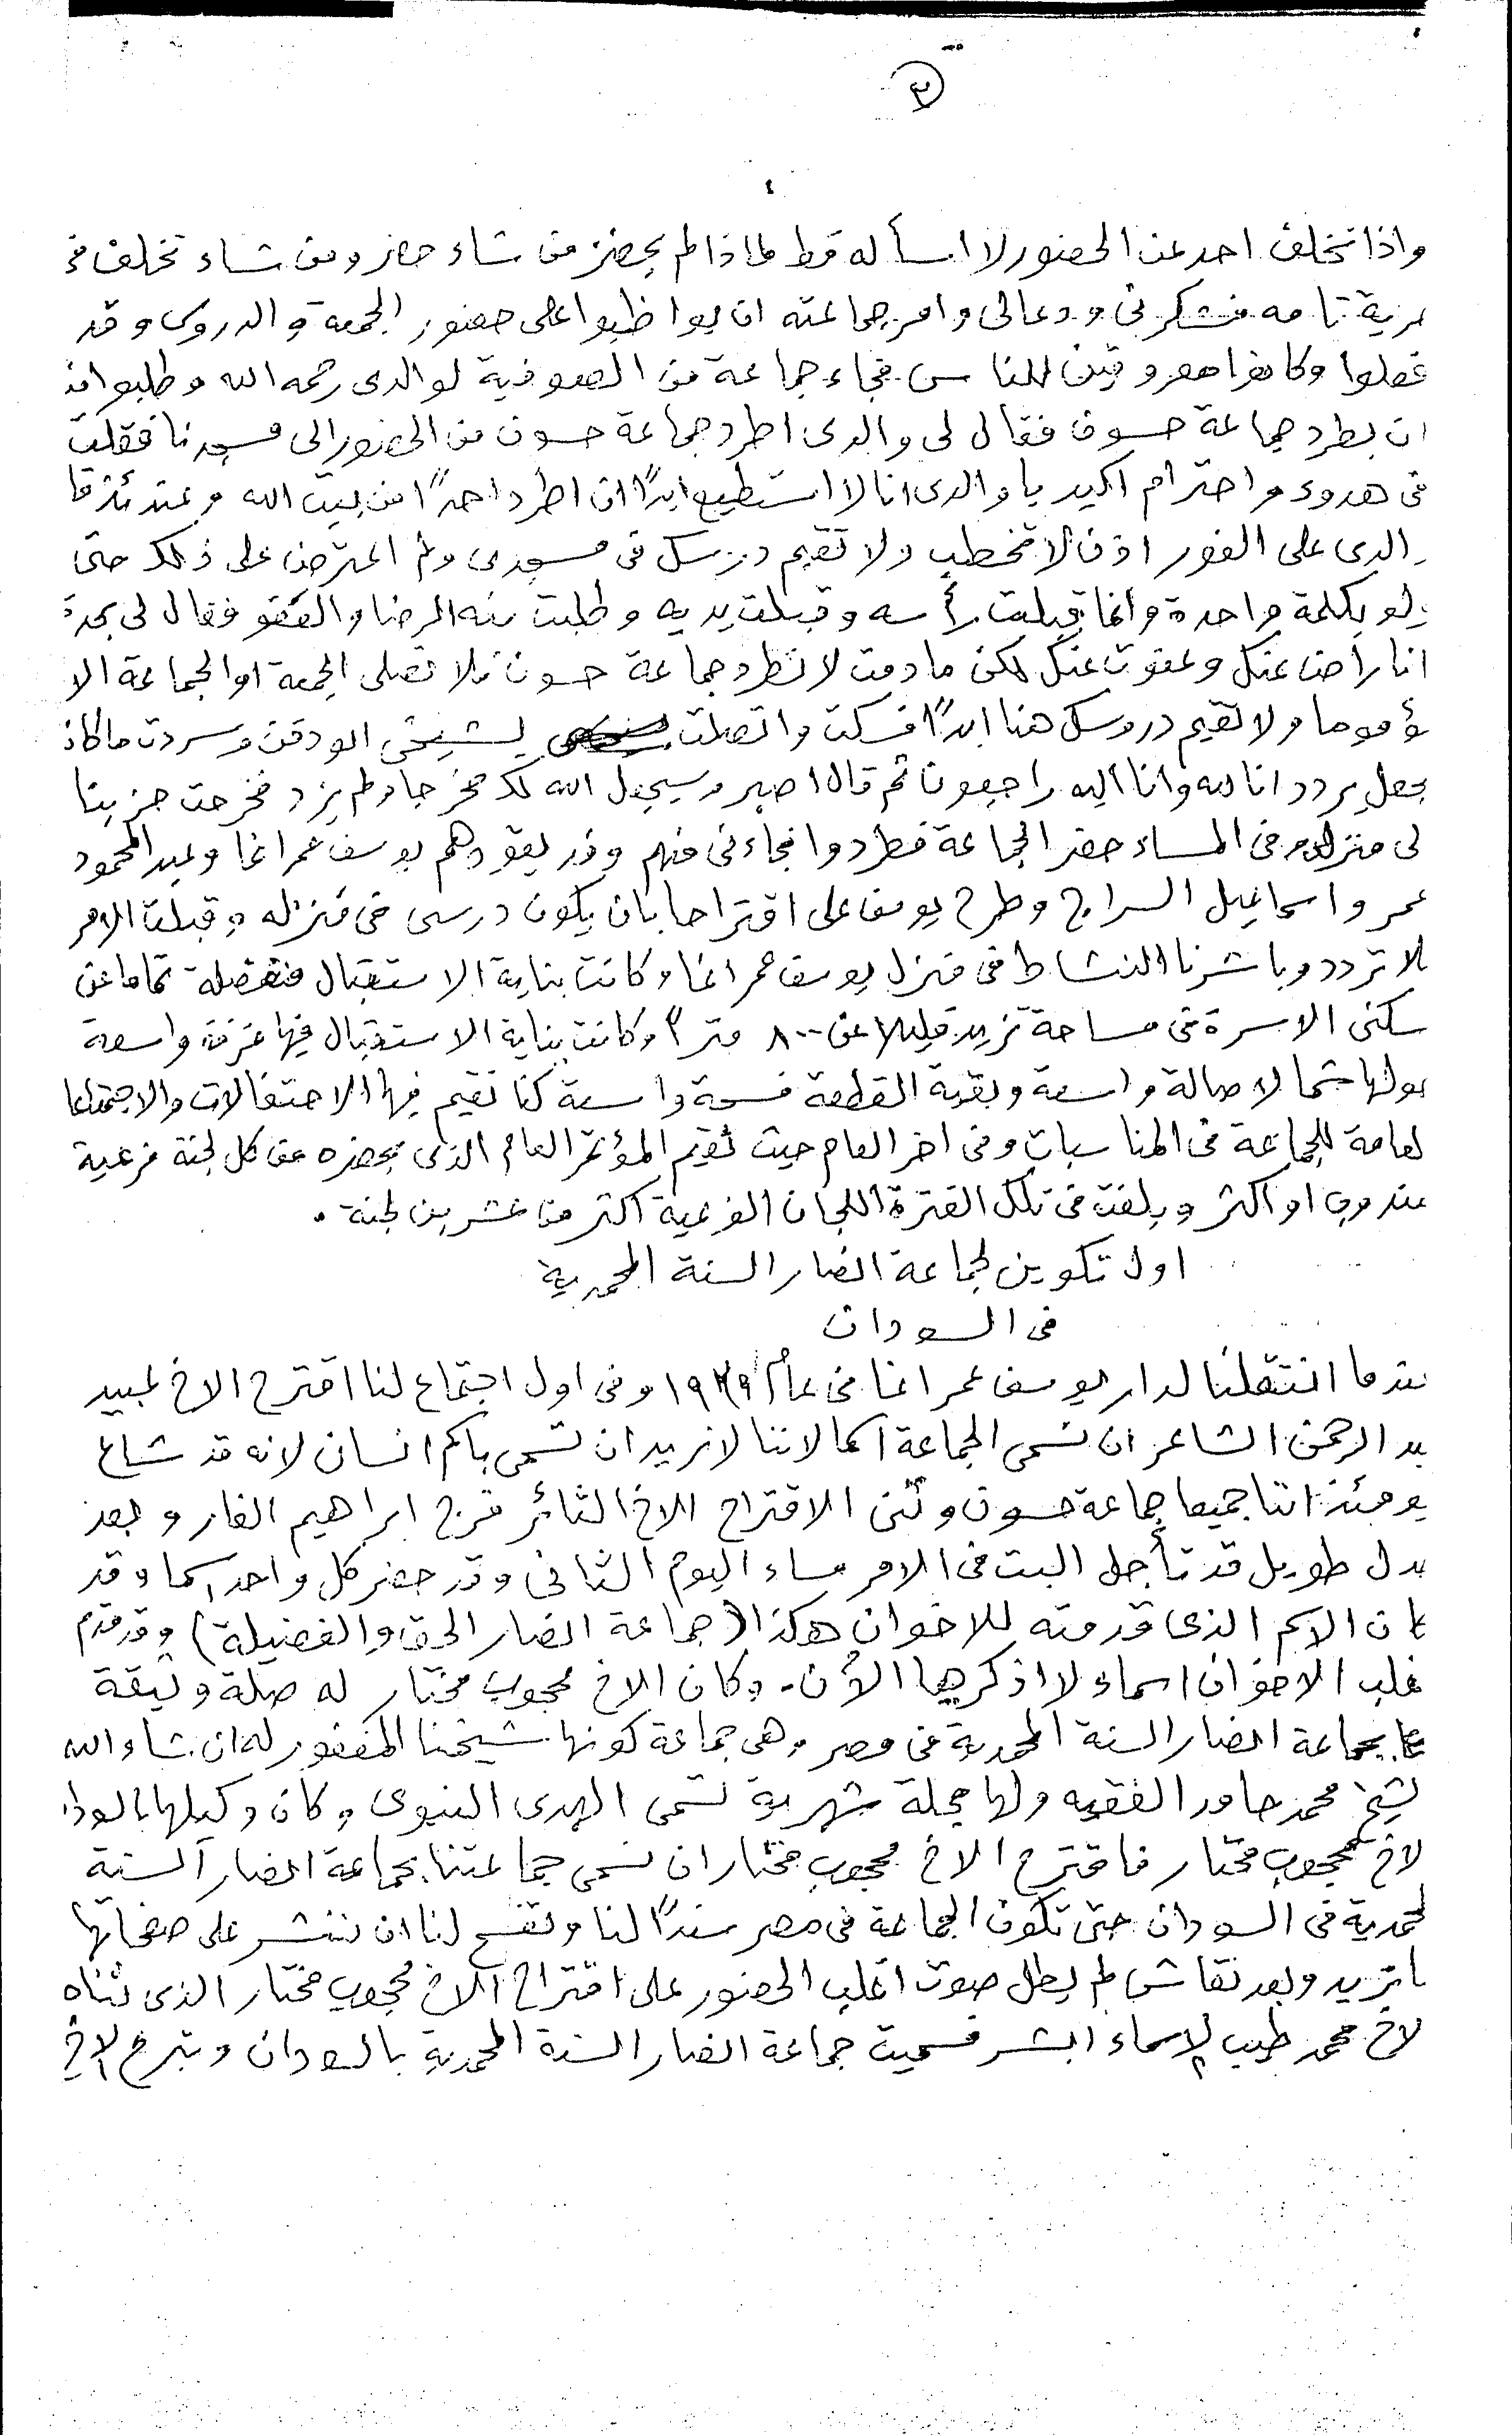 ٣
واذا تخلف احد عن الحضور لا اسأله قط لماذا لم يحضر من شاء حضر ومن شاء تخلف فى
حرية تامه فشكرنى ودعالى وامر جماعته ان يواظبوا على حضور الجمعة والدروس وقد
فعلوا وكانوا معروفين للناس فجاء جماعة من الصوفية لوالدى رحمه الله وطلبوا منه
ان يطرد جماعة حسون فقال لى والدى اطرد جماعة حسون من الحضور الى مسجدنا فقلت
فى هدوء واحترام اكيد يا والدى انا لا استطيع ابدًا ان اطرد احدًا من بيت الله وعندئذ قا
الدى على الفور اذن لا تخطب ولا تقيم درسك فى مسجدى ولم اعترض على ذلك حتى
ولو بكلمة واحدة وانما قبلت رأسه وقبلت يديه وطلبت منه الرضا والعفو فقال لى بحدة
انا راض عنك وعفوت عنك لكن ما دمت لا تطرد جماعة حسون فلا تصلى الجمعة او الجماعة الا
مؤموما ولا تقيم دروسك هنا ابدًا فسكت واتصلت بشيخى ابودقن وسردت ماكان
جعل يردد انا لله وانا اليه راجعون ثم قال اصبر وسيجعل الله لك مخرجا ولم يزد فخرجت حزينا
لى منزله وفى المساء حضر الجماعة فطردوا فجاءنى منهم وفد يقودهم يوسف عمر اغا وعبد المحمود
عمر واسماعيل السراج وطرح يوسف على اقتراحا بان يكون درسى فى منزله وقبلت الامر
بلا تردد وباشرنا النشاط فى منزل يوسف عمر اغا وكانت بناية الاستقبال منفصلة تماما عن
سكنى الاسرة فى مساحة تزيد قليلا عن ٨٠٠ مترًا وكانت بناية الاستقبال فيها غرفة واسعة
حولها شمالا صالة واسعة وبقية القطعة فسحة واسعة كنا نقيم فيها الاحتفالات والاجتماعا
لعامة للجماعة فى المناسبات وفى اخر العام حيث نقيم المؤتمر العام الذى يحضره عن كل لجنة فرعية
مندوب او اكثر وبلغت فى تلك الفترة اللجان الفرعية اكثر من عشرين لجنة .
اول تكوين لجماعة انصار السنة المحمدية
فى السودان
عندما انتقلنا لدار يوسف عمر اغا فى عام ١٩٣٩ وفى اول اجتماع لنا اقترح الاخ عبيد
بد الرحمن الشاعر ان نسمى الجماعة اسما لاننا لا نريد ان تسمى باسم انسان لانه قد شاع
يومئذ اننا جميعا جماعة حسون وثنى الاقتراح الاخ الثائر فرج ابراهيم الفار وبعد
جدل طويل قد تأجل البت فى الامر مساء اليوم الثانى وقد حضر كل واحد اسما وقد
كان الاسم الذى قدمته للاخوان هكذا (جماعة انصار الحق والفضيلة) وقد قدم
غلب الاخوان اسماء لا اذكرها الأن . وكان الاخ محجوب مختار له صلة وثيقة
بجماعة انصار السنة المحمدية فى مصر وهى جماعة كونها شيخنا المغفور له ان شاء الله
لشيخ محمد حامد الفقيه ولها مجلة شهرية تسمى الهدى النبوى وكان وكيلها بالسودان
لاخ محجوب مختار فاقترح الاخ محجوب مختار ان نسمى جماعتنا بجماعة انصار السنة
لمحمدية فى السودان حتى تكون الجماعة فى مصر سندًا لنا وتفسح لنا ان ننشر على صفحاتها
ما نريد وبعد نقاش لم يطل صوت اغلب الحضور على اقتراح الاخ محجوب مختار الذى ثناه
لاخ محمد طيب الاسماء البشر فسميت جماعة انصار السنة المحمدية بالسودان وتبرع الاخ